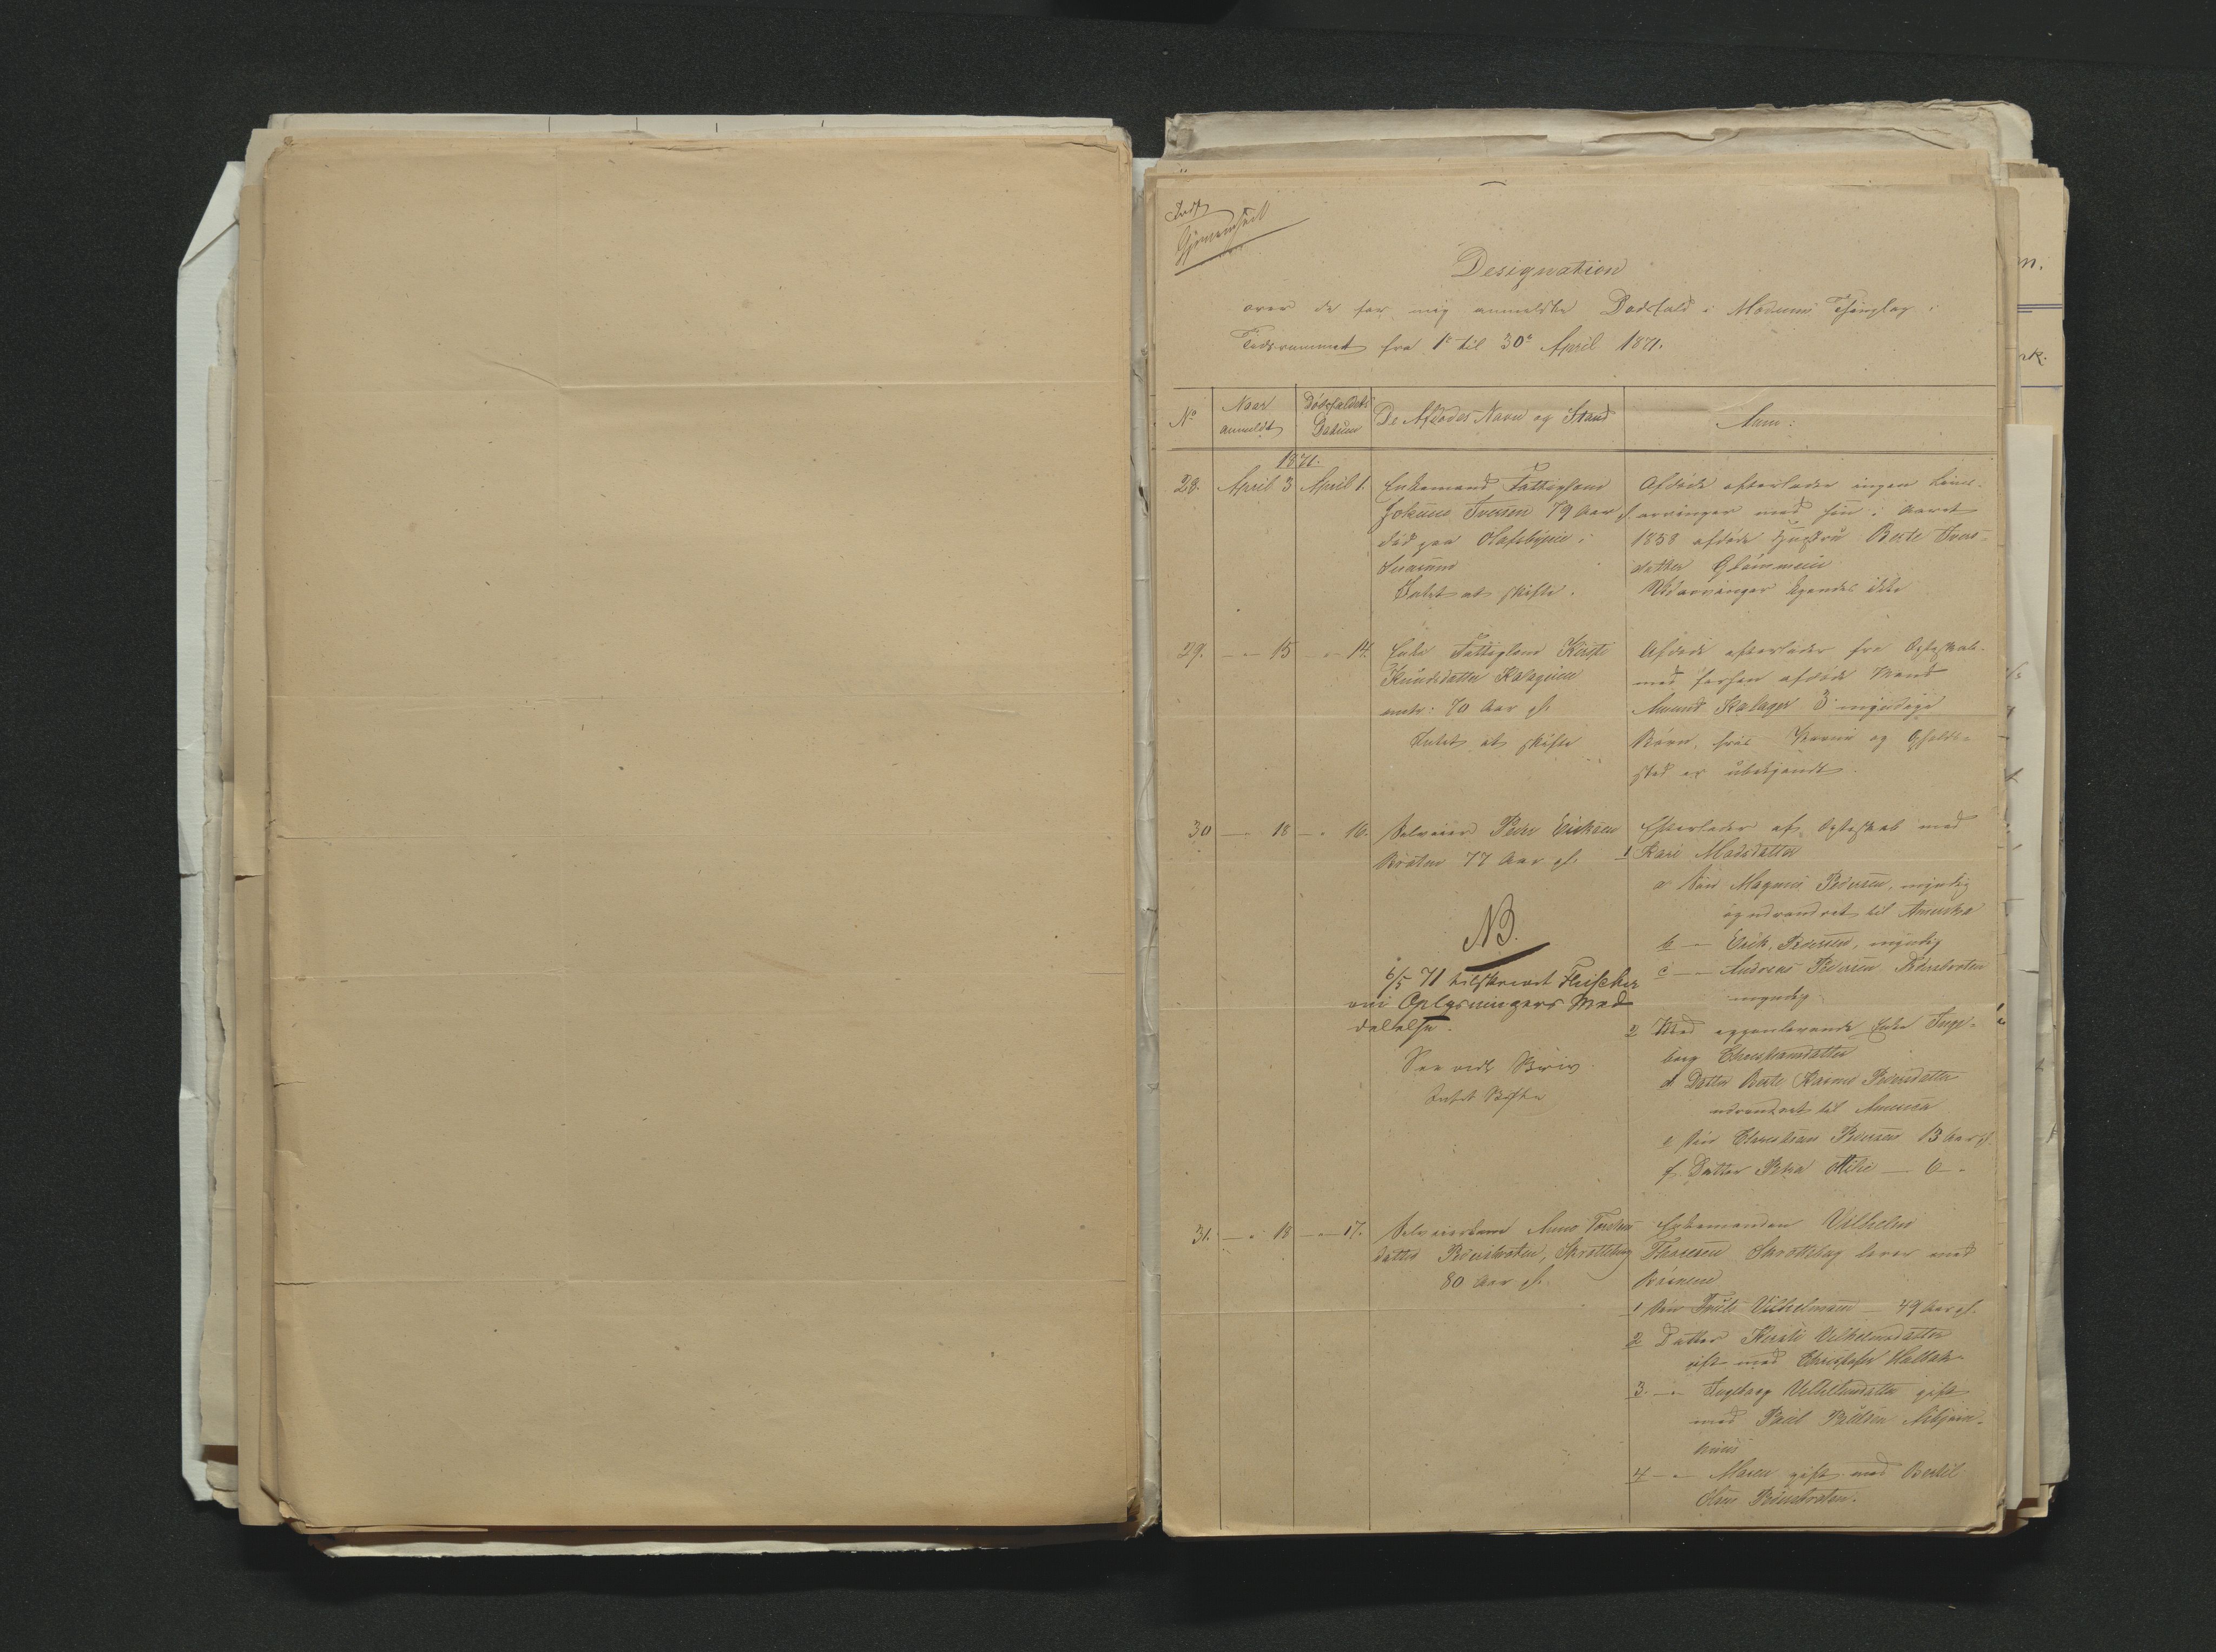 Indf
Gjennemseet
Designation
over de for mig anmeldte Dødsfald i Modums Thinglag i
Tidsrummet fra 1e til 30e April 1871.
No
Naar
anmeldt
Dødsfaldets
Datum
De Afdødes Navn og Stand
Anm:
1871.
28. April 3 April 1.
Enkemand Fattiglem
Iversen 79 Aar gl.
død paa Olafsbyeie i
Snarum
Intet at skifte.
Afdøde efterlader ingen Livs-
arvinger med sin i Aaret
1858 afdøde Hustru Berte Ivers-
datter
Udarvinger kjendes ikke
29. — " — 15 — " — 14.
Enke Fattiglem Kirsti
Knudsdatter Kalageie
omtr: 70 Aar gl.
Intet at skifte
Afdøde efterlader fra Ægteskab
med forhen afdøde Mand
Amund Kalager 3 myndige
Børn, hvis Navne og Opholds-
sted er ubekjendt.
30 — " — 18 — " — 16.
Selveier Peder Eriksen
Braaten 77 Aar gl.
NB.
6/5 71 tilskrevet Fleischer
om Oplysningers Med
delelse.
See vedl Brev
Intet Skifte
Efterlader af Ægteskab med
1 Kari Madsdatter
a Søn Magnus Pedersen, myndig
og udvandret til Amerika
b — " — Erik Pedersen, myndig
c — " — Andreas Pedersen
myndig
2 Med igjenlevende Enke Inge-
borg Christiansdatter
d Datter Berte Karine Pedersdatter
udvandret til Amerika
e Søn Christian Pedersen 13 Aar gl.
f. Datter Petra Ottilie — 6 — "
31. — " — 18 — " — 17.
Selveierkone Anne
datter Skrattebøg
80 Aar gl.
Enkemanden Vilhelm
Thoresen Skrattebøg lever med
Børnene
1 Søn Vilhelmsen — 49 Aar gl.
2 Datter Kirsti Vilhelmsdatter
gift med Christofer
3. — " — Ingeborg Vilhelmsdatter gift
med Paul Paulsen
4 — " — Maren gift med Bertil
Olsen